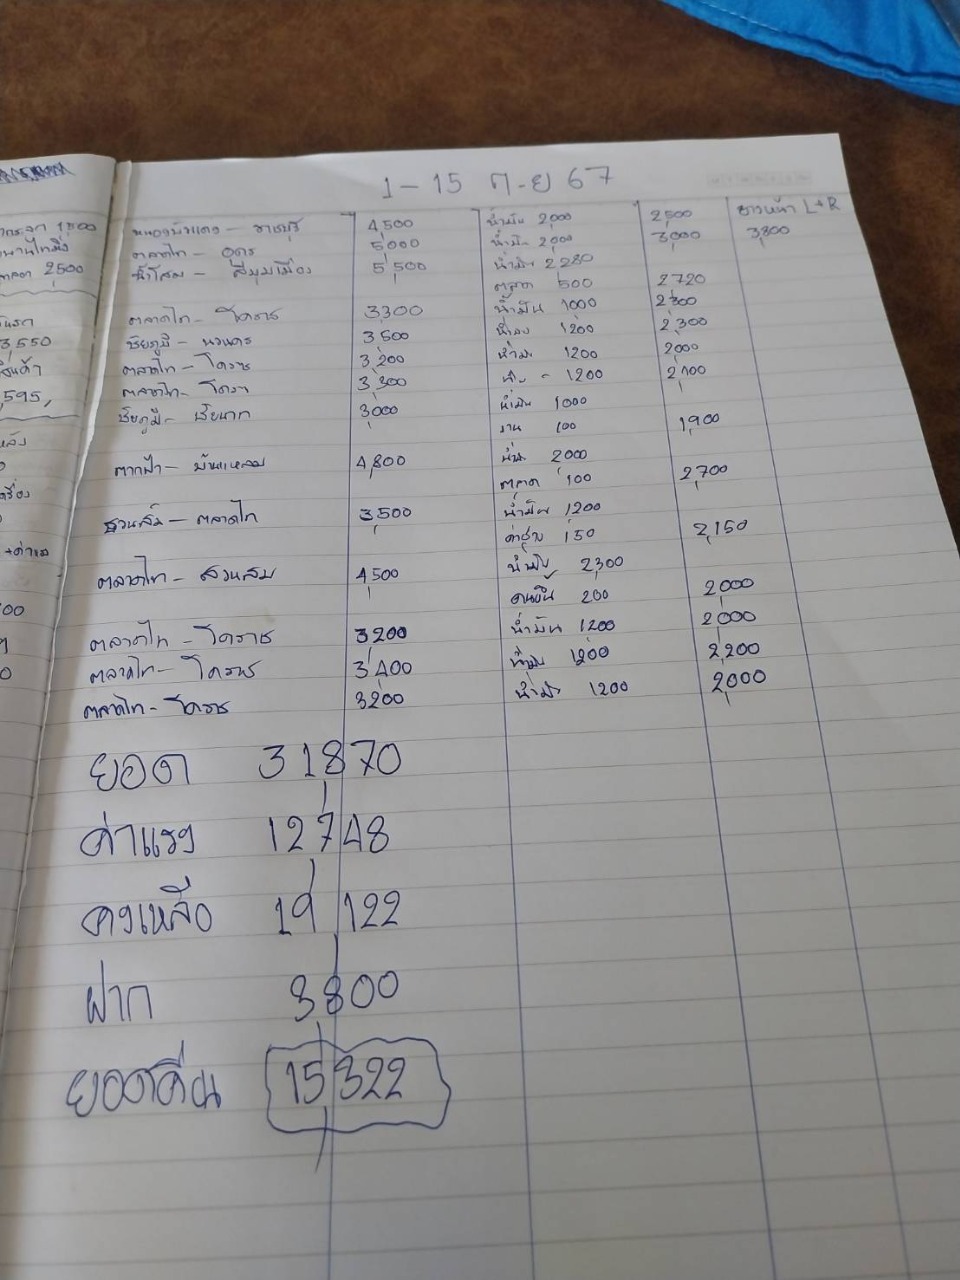 1500
2500
3,550
,595,
1-15 ก.ย 67
หนองบัวแดง - ราชบุรี 4,500 น้ำมัน 2,000 2,500 ยางหน้า L+R
ตลาดไท - อุดร 5,000 น้ำมัน 2,000 3,000 3,800
น้ำโสม - สี่มุมเมือง 5,500 น้ำมัน 2,280
ตลาด 500 2,720
ตลาดไท - โคราช 3,300 น้ำมัน 1000 2,300
ชัยภูมิ - นวนคร 3,500 1200 2,300
ตลาดไท - โคราช 3,200 1200 2,000
ตลาดไท - โครา 3,300 1200 2,100
ชัยภูมิ - ชัยนาท 3,000 น้ำมัน 1000
100 1,900
ตากฟ้า - บ้านแหลม 4,800 2000
ตลาด 100 2,700
สวนส้ม - ตลาดไท 3,500 น้ำมัน 1200
150 2,150
ตลาดไท - สวนสม 4,500 2,300
คนขึ้น 200 2,000
ตลาดไท - โคราช 3,200 น้ำมัน 1200 2,000
ตลาดไท - โคราช 3,400 1200 2,200
ตลาดไท - โคราช 3,200 1200 2,000
ยอด 31,870
ค่าแรง 12,748
คงเหลือ 19,122
ฝาก 3,800
ยอดคืน 15,322